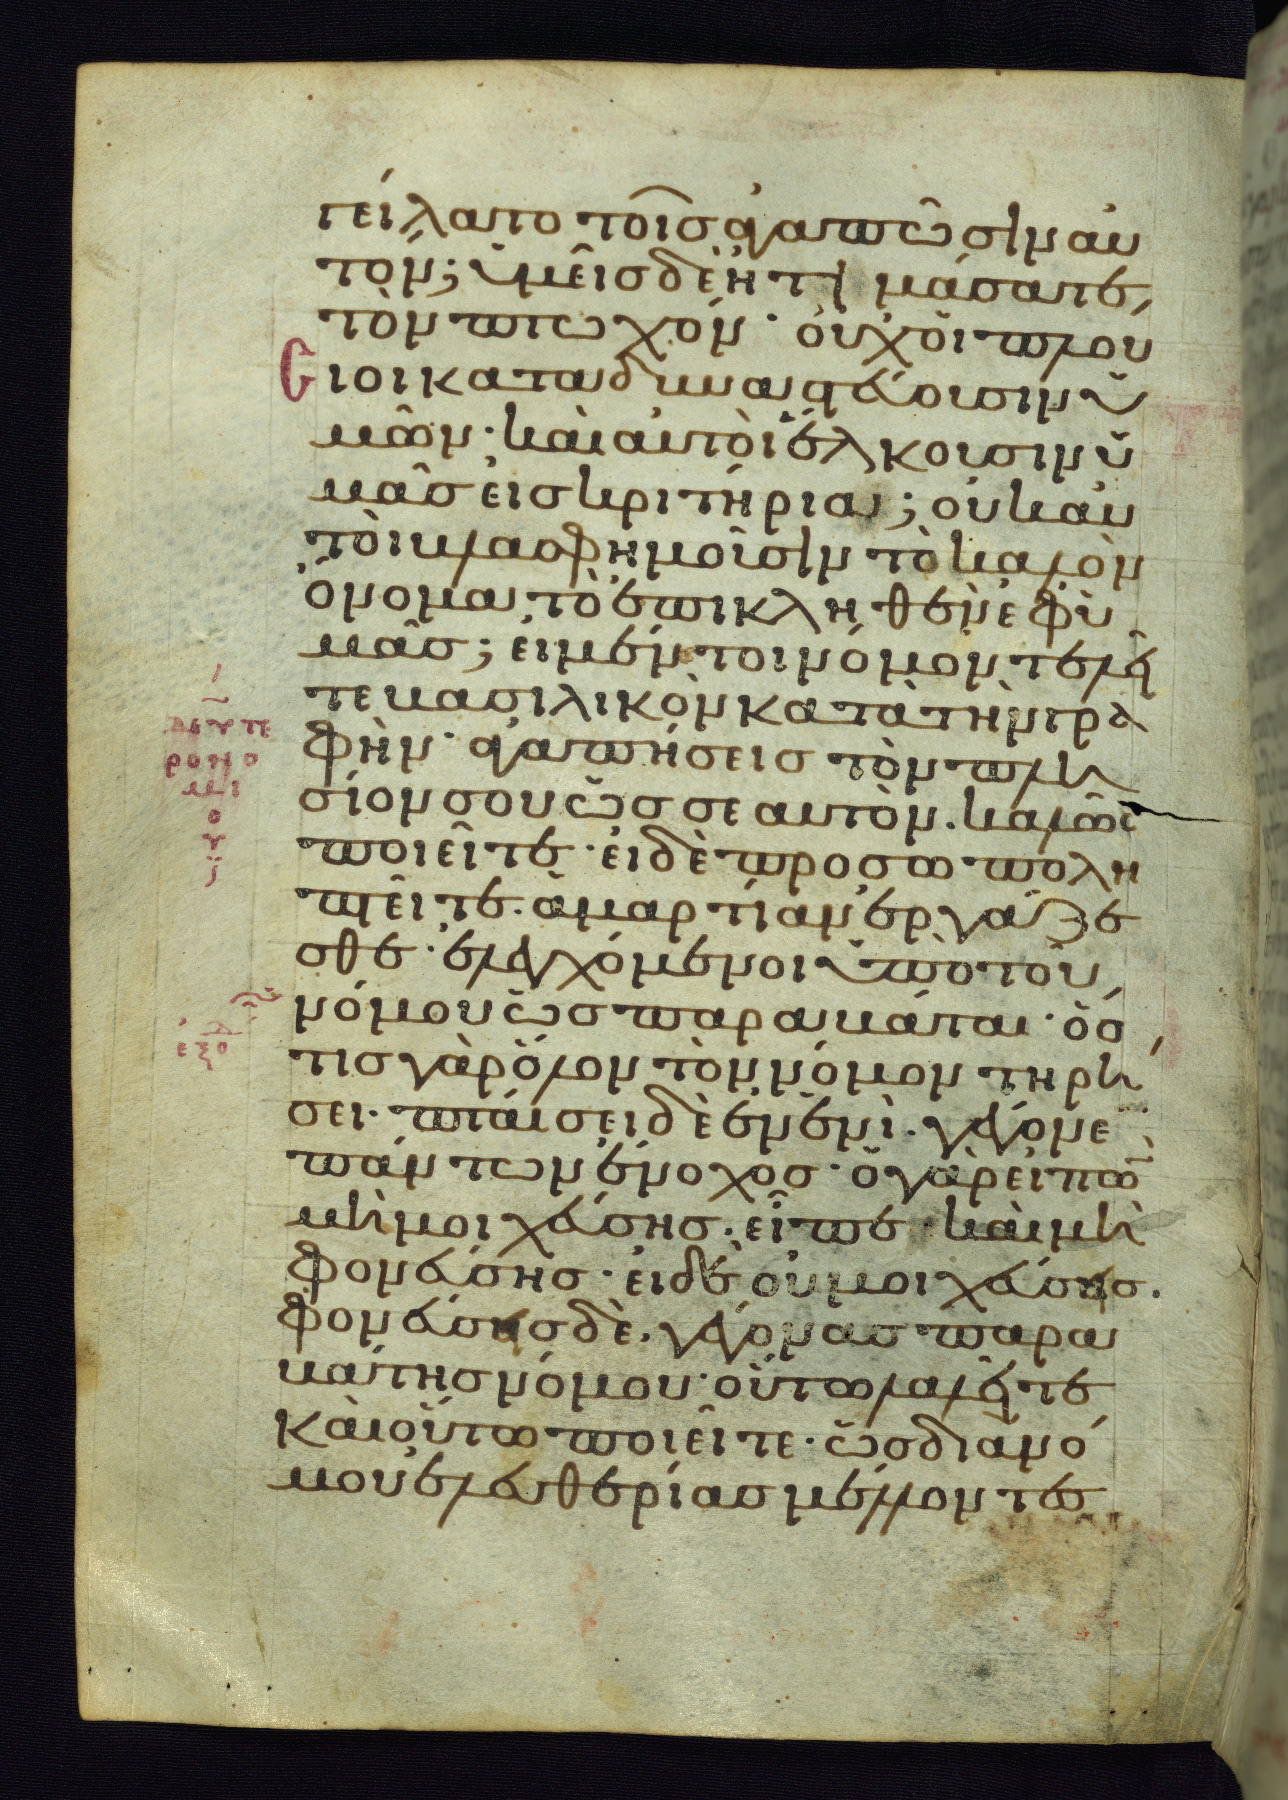 γείλατο τοῖς ἀγαπῶσιν αὐ
τόν; ὑμεῖς δὲ ἠτιμάσατε
τὸν πτωχόν· οὐχ οἱ πλού
σιοι καταδυναστεύουσιν ὑ
μῶν· καὶ αὐτοὶ ἕλκουσιν ὑ
μᾶς εἰς κριτήρια; οὐκ αὐ
τοὶ βλασφημοῦσιν τὸ καλὸν
ὄνομα τὸ ἐπικληθὲν ἐφ ὑ
μᾶς; εἰ μέντοι νόμον τελεῖ
τε βασιλικὸν κατὰ τὴν γρα
φὴν· ἀγαπήσεις τὸν πλη
σίον σου ὡς σεαυτὸν. καλῶς
ποιεῖτε· εἰ δὲ προσωπολη
πτεῖτε. ἁμαρτίαν ἐργάζε
σθε· ἐλεγχόμενοι ὑπὸ τοῦ
νόμου ὡς παραβάται· ὅσ
τις γὰρ ὅλον τὸν νόμον τηρή
σει· πταίσει δὲ ἐν ἑνὶ. γέγονε
πάντων ἔνοχος· ὁ γὰρ εἰπὼν
μὴ μοιχεύσης. εἶπε καὶ μὴ
φονεύσης· εἰ δὲ οὐ μοιχεύσης.
φονεύσης δὲ. γέγονας παρα
βάτης νόμου· οὕτω λαλεῖτε
καὶ οὕτω ποιεῖτε· ὡς διὰ νό
μου ἐλευθερίας μέλλοντες
δευτε
ρονο
μι
ο
υ
εξο